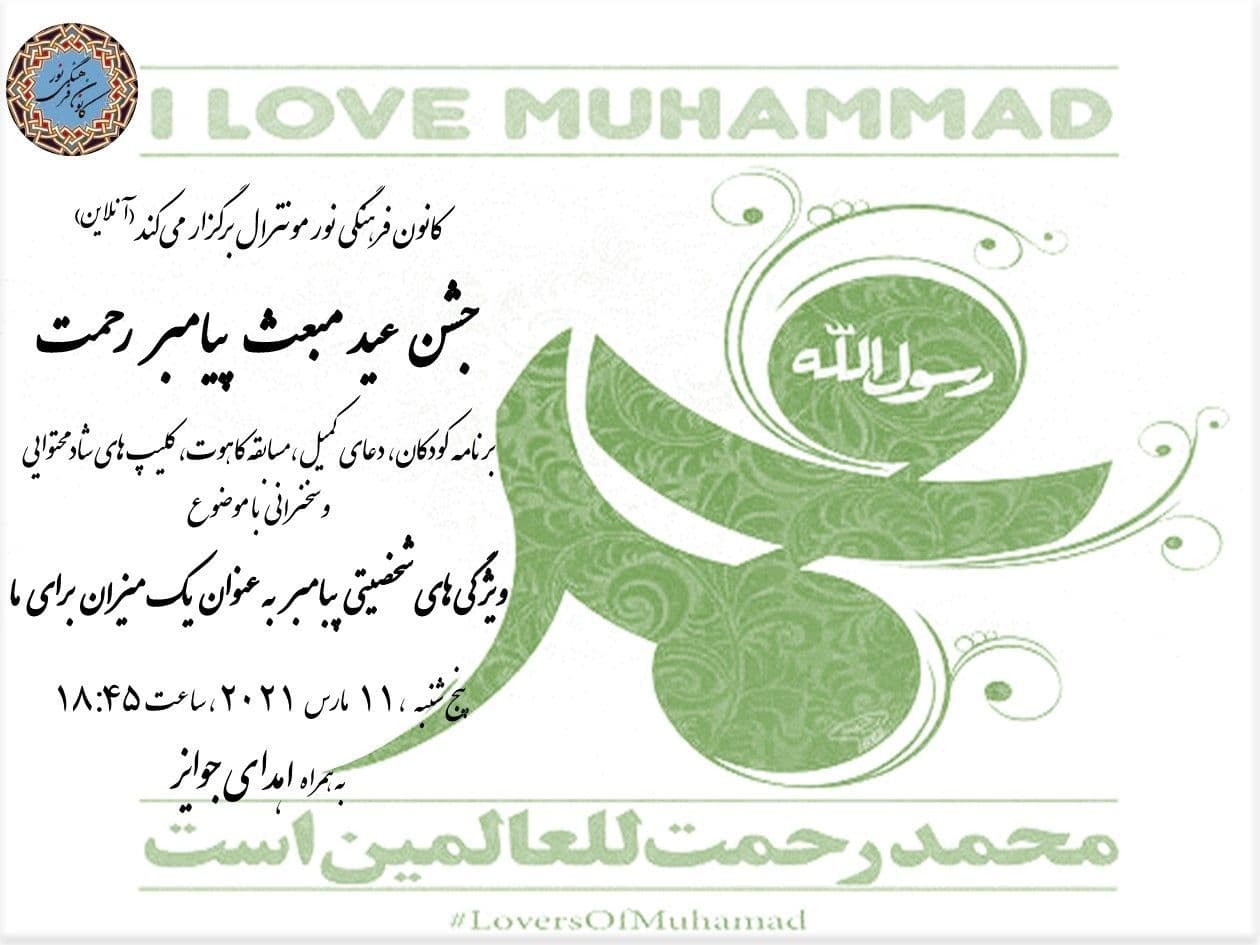 کانون فرهنگی نور
I LOVE MUHAMMAD
کانون فرهنگی نور مونترال برگزار می‌کند (آنلاین)
جشن عید مبعث پیامبر رحمت
رسول الله
محمد
برنامه کودکان، دعای کمیل، مسابقه کاهوت، کلیپ‌های شاد محتوایی
و سخنرانی با موضوع
ویژگی‌های شخصیتی پیامبر به عنوان یک میزان برای ما
پنج شنبه، ۱۱ مارس ۲۰۲۱، ساعت ۱۸:۴۵
به همراه اهدای جوایز
محمد رحمت للعالمین است
#LoversOfMuhamad